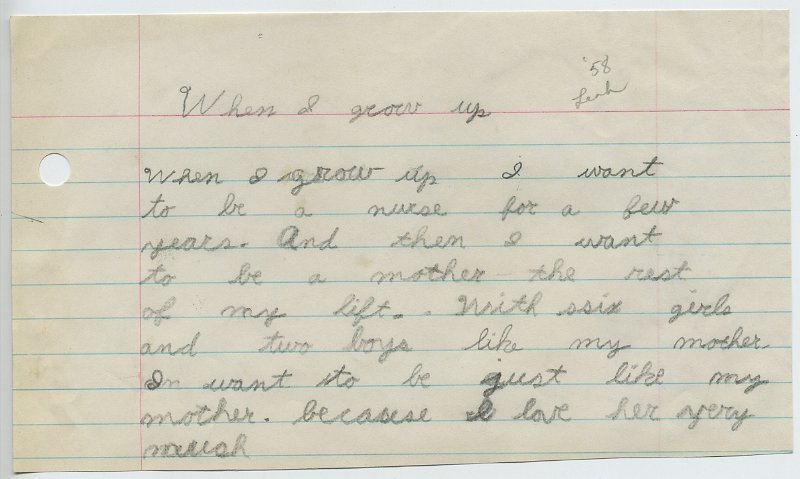 '58
Leah
When I grow up
When I grow up I want
to be a nurse for a few
years. And then I want
to be a mother the rest
of my lift. . With ssix girls
and two boys like my mother.
In want to be just like my
mother. because I love her very
mush